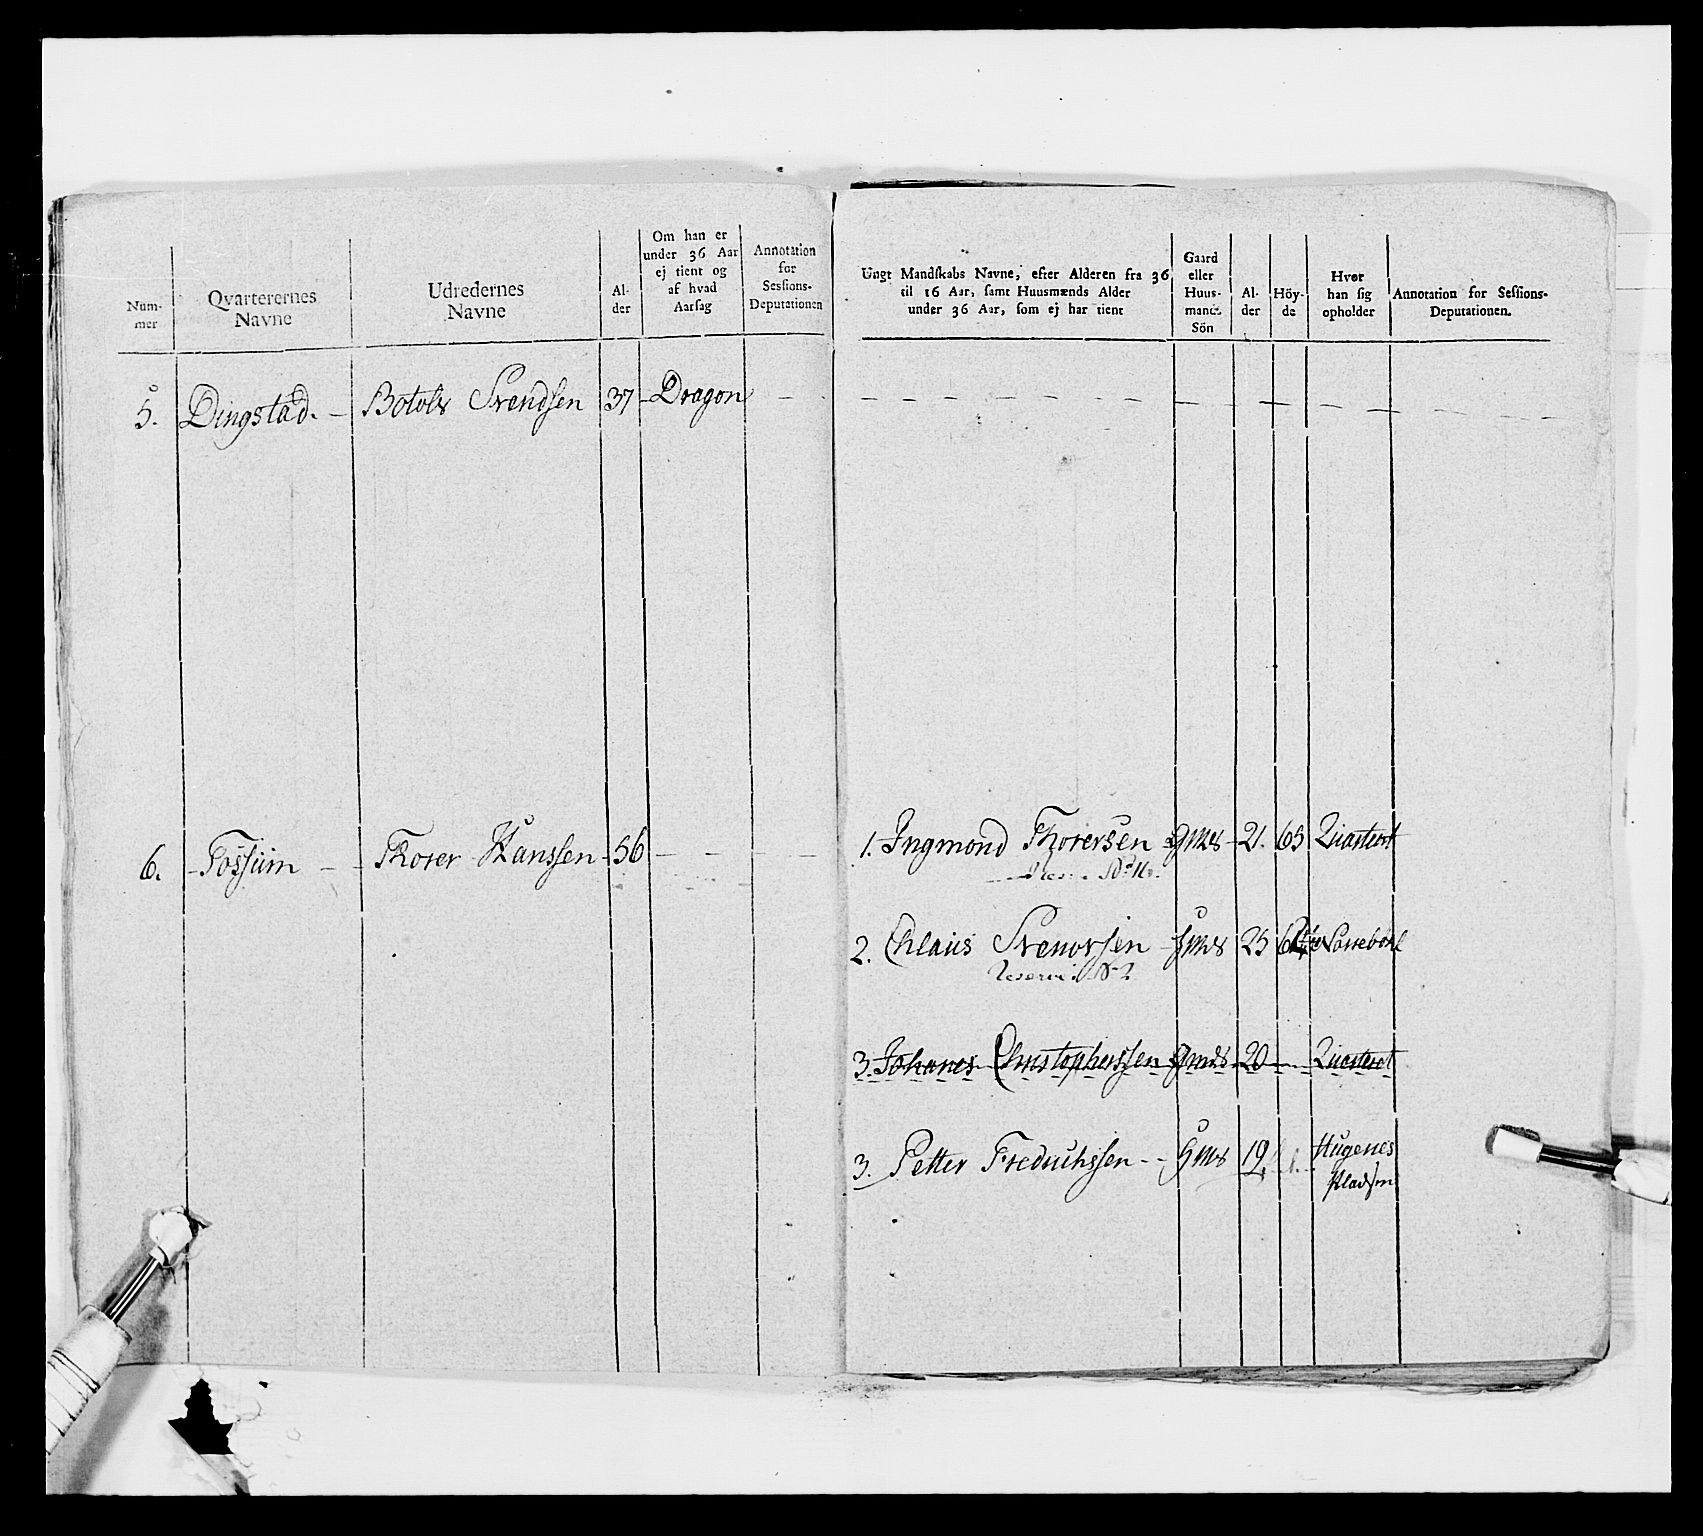 Num-
mer
Qvarterernes
Navne
Udredernes
Navne
Al-
der
Om han er
under 36 Aar
ej tient og
af hvad
Aarsag
Annotation
for
Sessions-
Deputationen
Ungt Mandskabs Navne, efter Alderen fra 36
til 16 Aar, samt Huusmænds Alder
under 36 Aar, som ej har tient
Gaard
eller
Huus-
mands
Sön
Al-
der
Höy-
de
Hvor
han sig
opholder
Annotation for Sessions-
Deputationen.
5. Dingstad. Botolv Svendsen 37 Dragon
6. Fossum Thorer Hanssen 56
1. Ingmond Thorersen 21. 63 Quarteret
2. Chlaus 25
Reserve
3. Johanes Christophersen 20 Quarteret
3. Petter Fredrichssen 19 Hugenes
Pladsen